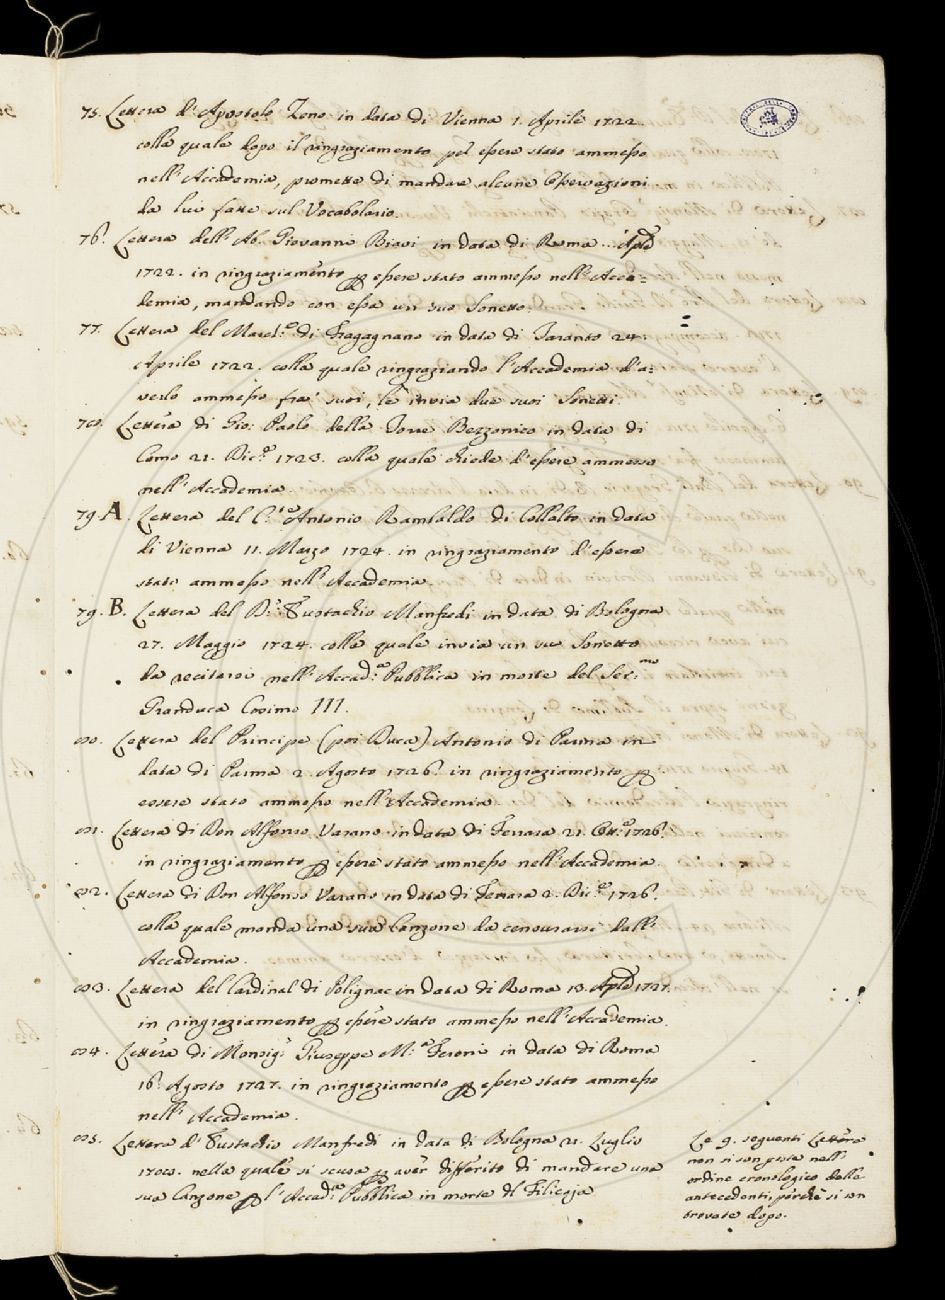 75. Lettera d'Apostolo Zeno in data di Vienna 1. Aprile 1722.
colla quale dopo il ringraziamento pel essere stato ammesso
nell'Accademia, promette di mandare alcune osservazioni
da lui fatte sul Vocabolario.
76. Lettera dell'Ab. Giovanni Biavi in data di Roma ... Aple
1722. in ringraziamento per essere stato ammesso nell'Acca=
demia, mandando con essa un suo Sonetto.
77. Lettera del March.e di Fragagnano in data di Taranto 24.
Aprile 1722. colla quale ringraziando l'Accademia d'a=
verlo ammesso fra' suoi, le invia due suoi Sonetti.
78. Lettera di Gio: Paolo della Torre Rezzonico in data di
Como 21. Dic.e 1723. colla quale chiede d'essere ammesso
nell'Accademia.
79. A. Lettera del C.te Antonio Rambaldo di Collalto in data
di Vienna 11. Marzo 1724. in ringraziamento d'essere
stato ammesso nell'Accademia.
79. B. Lettera del D.r Eustachio Manfredi in data di Bologna
27. Maggio 1724. colla quale invia un suo Sonetto
da recitarsi nell'Accad.a Pubblica in morte del Ser.mo
Granduca Cosimo III.
80. Lettera del Principe (poi Duca) Antonio di Parma in
data di Parma 2. Agosto 1726. in ringraziamento per
essere stato ammesso nell'Accademia.
81. Lettera di Don Alfonso Varano in data di Ferrara 21. Ott.e 1726.
in ringraziamento per essere stato ammesso nell'Accademia.
82. Lettera di Don Alfonso Varano in data di Ferrara 2. Dic.e 1726.
colla quale manda una sua Canzone da censurarsi dall'
Accademia.
83. Lettera del Cardinal di Polignac in data di Roma 13. Aple 1727.
in ringraziamento per essere stato ammesso nell'Accademia.
84. Lettera di Monsig.r Giuseppe M.a Feroni in data di Roma
16. Agosto 1727. in ringraziamento per essere stato ammesso
nell'Accademia.
85. Lettera d'Eustachio Manfredi in data di Bologna 21. Luglio
1708. nella quale si scusa per aver differito di mandare una
sua Canzone per l'Accad.a Pubblica in morte del Filicaja
Le 9. seguenti Lettere
non si son poste nell'
ordine cronologico delle
antecedenti, perchè si son
trovate dopo.